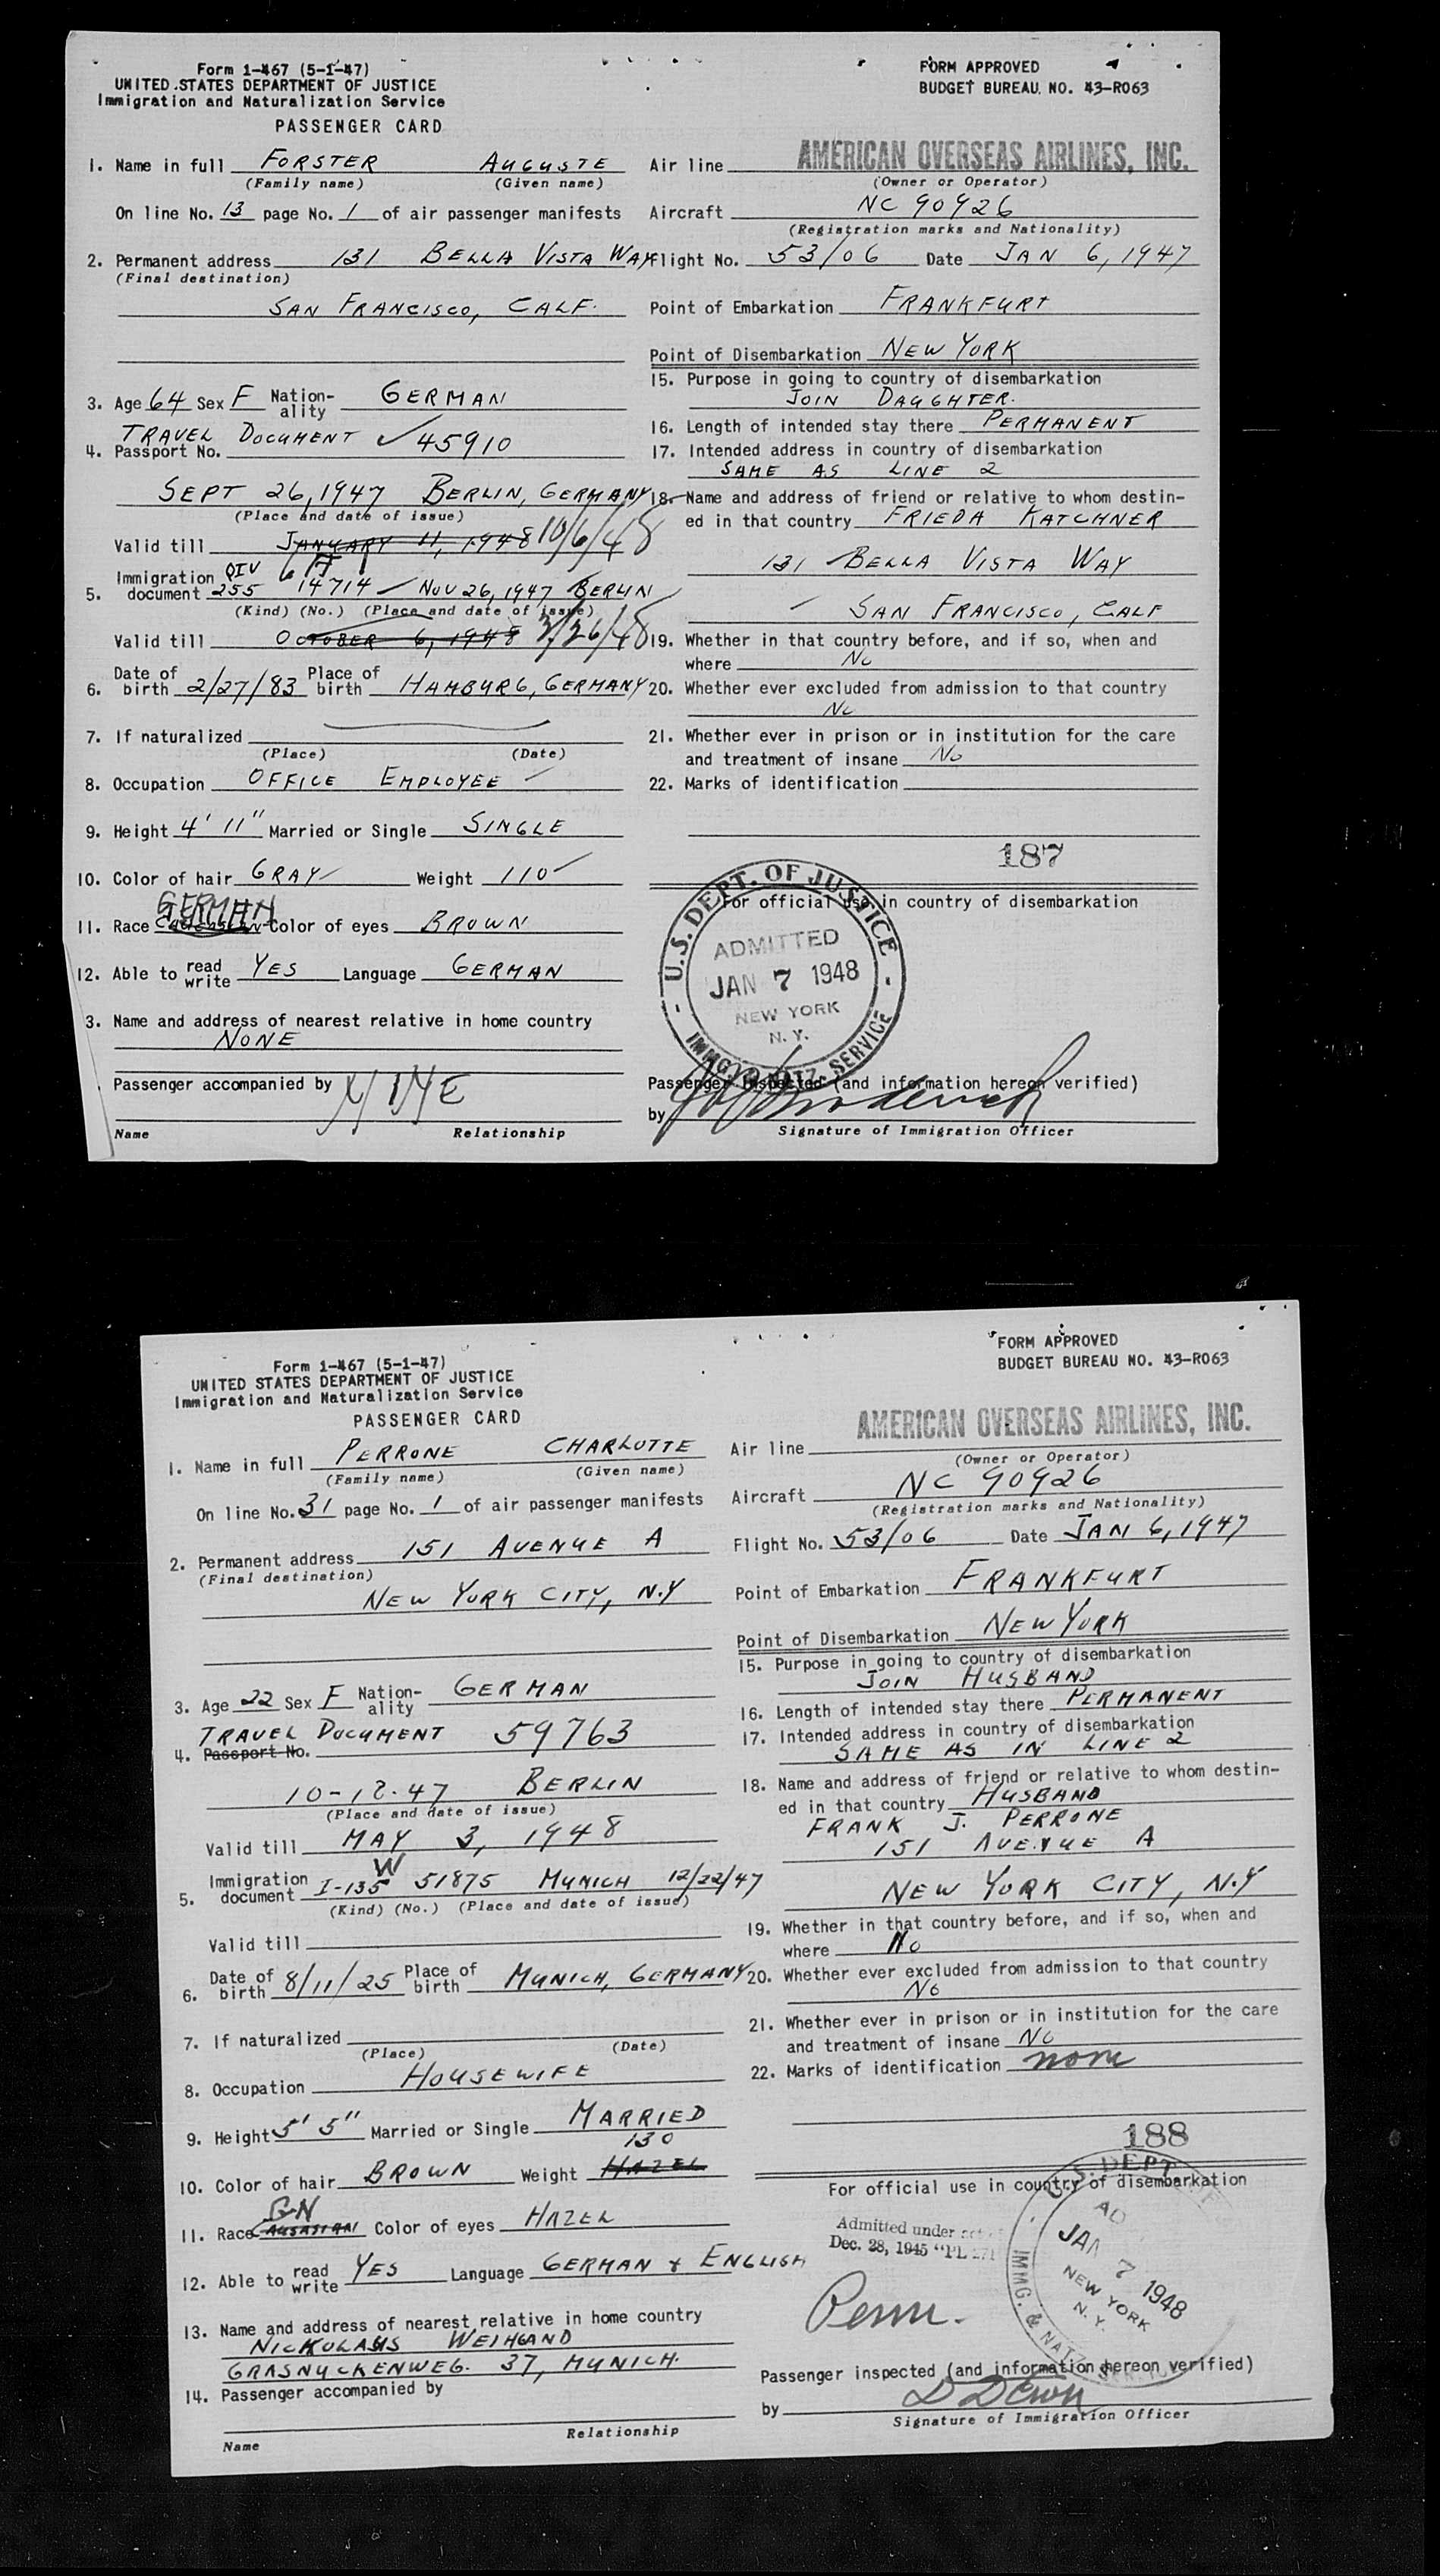 Form 1-467 (5-1-47)
UNITED STATES DEPARTMENT OF JUSTICE
Immigration and Naturalization Service
PASSENGER CARD
FORM APPROVED
BUDGET BUREAU NO. 43-R063
1. Name in full FORSTER AUGUSTE
(Family name) (Given name)
On line No. 13 page No. 1 of air passenger manifests
2. Permanent address 131 BELLA VISTA WAY
(Final destination)
SAN FRANCISCO, CALF.
3. Age 64 Sex F Nation-ality GERMAN
TRAVEL DOCUMENT
4. Passport No. 45910
SEPT 26, 1947 BERLIN, GERMANY
(Place and date of issue)
Valid till JANUARY 11, 1948 10/6/48
QIV
5. Immigration document 255 14714 NOV 26, 1947 BERLIN
(Kind) (No.) (Place and date of issue)
Valid till OCTOBER 6, 1948 3/26/48
6. Date of birth 2/27/83 Place of birth HAMBURG, GERMANY
7. If naturalized
(Place) (Date)
8. Occupation OFFICE EMPLOYEE
9. Height 4' 11" Married or Single SINGLE
10. Color of hair GRAY Weight 110
GERMAN
11. Race CAUCASIAN Color of eyes BROWN
12. Able to read write YES Language GERMAN
3. Name and address of nearest relative in home country
NONE
Passenger accompanied by
Name Relationship
Air line AMERICAN OVERSEAS AIRLINES, INC.
(Owner or Operator)
Aircraft NC 90926
(Registration marks and Nationality)
Flight No. 53/06 Date JAN 6, 1947
Point of Embarkation FRANKFURT
Point of Disembarkation NEW YORK
15. Purpose in going to country of disembarkation
JOIN DAUGHTER.
16. Length of intended stay there PERMANENT
17. Intended address in country of disembarkation
SAME AS LINE 2
18. Name and address of friend or relative to whom destin-
ed in that country FRIEDA KATCHNER
131 BELLA VISTA WAY
SAN FRANCISCO, CALF
19. Whether in that country before, and if so, when and
where No
20. Whether ever excluded from admission to that country
No
21. Whether ever in prison or in institution for the care
and treatment of insane No
22. Marks of identification
187
For official use in country of disembarkation
U.S. DEPT. OF JUSTICE
ADMITTED
JAN 7 1948
NEW YORK
N. Y.
IMMG. & NATZ. SERVICE
Passenger inspected (and information hereon verified)
by
Signature of Immigration Officer
Form 1-467 (5-1-47)
UNITED STATES DEPARTMENT OF JUSTICE
Immigration and Naturalization Service
PASSENGER CARD
FORM APPROVED
BUDGET BUREAU NO. 43-R063
1. Name in full PERRONE CHARLOTTE
(Family name) (Given name)
On line No. 31 page No. 1 of air passenger manifests
2. Permanent address 151 AVENUE A
(Final destination)
NEW YORK CITY, N.Y
3. Age 22 Sex F Nation-ality GERMAN
TRAVEL DOCUMENT 59763
4. Passport No.
10-18-47 BERLIN
(Place and date of issue)
Valid till MAY 3, 1948
W
5. Immigration document I-135 51875 MUNICH 12/22/47
(Kind) (No.) (Place and date of issue)
Valid till
6. Date of birth 8/11/25 Place of birth MUNICH, GERMANY
7. If naturalized
(Place) (Date)
8. Occupation HOUSEWIFE
9. Height 5' 5" Married or Single MARRIED
130
10. Color of hair BROWN Weight HAZEL
GN
11. Race CAUSASIAN Color of eyes HAZEL
12. Able to read write YES Language GERMAN & ENGLISH
13. Name and address of nearest relative in home country
NICKOLAUS WEIHAND
GRASNUCKENWEG. 37, MUNICH.
14. Passenger accompanied by
Name Relationship
Air line AMERICAN OVERSEAS AIRLINES, INC.
(Owner or Operator)
Aircraft NC 90926
(Registration marks and Nationality)
Flight No. 53/06 Date JAN 6, 1947
Point of Embarkation FRANKFURT
Point of Disembarkation NEW YORK
15. Purpose in going to country of disembarkation
JOIN HUSBAND
16. Length of intended stay there PERMANENT
17. Intended address in country of disembarkation
SAME AS IN LINE 2
18. Name and address of friend or relative to whom destin-
ed in that country HUSBAND
FRANK J. PERRONE
151 AVENUE A
NEW YORK CITY, N.Y
19. Whether in that country before, and if so, when and
where No
20. Whether ever excluded from admission to that country
No
21. Whether ever in prison or in institution for the care
and treatment of insane No
22. Marks of identification none
188
For official use in country of disembarkation
Admitted under act
Dec. 28, 1945 "PL 271
JAN 7 1948
NEW YORK
N. Y.
Perm.
Passenger inspected (and information hereon verified)
by
Signature of Immigration Officer